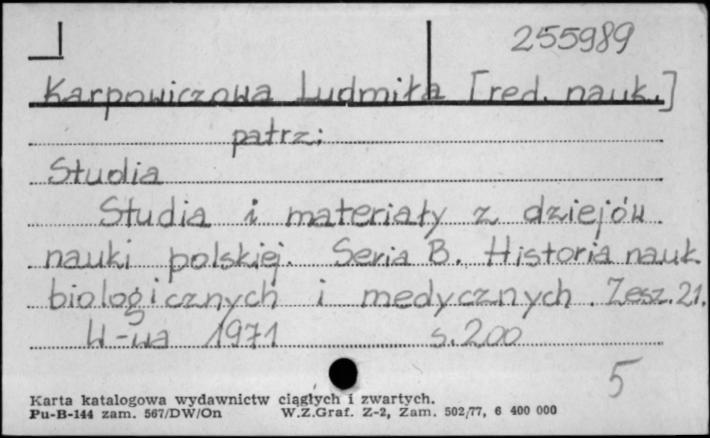 255989
Karpowiczowa Ludmiła [red. nauk.]
patrz:
Studia
Studia i materiały z dziejów
nauki polskiej. Seria B. Historia nauk
biologicznych i medycznych. Zesz. 21.
W-wa 1971 s. 200
5
Karta katalogowa wydawnictw ciągłych i zwartych.
Pu-B-144 zam. 567/DW/On W.Z.Graf. Z-2, Zam. 502/77, 6 400 000